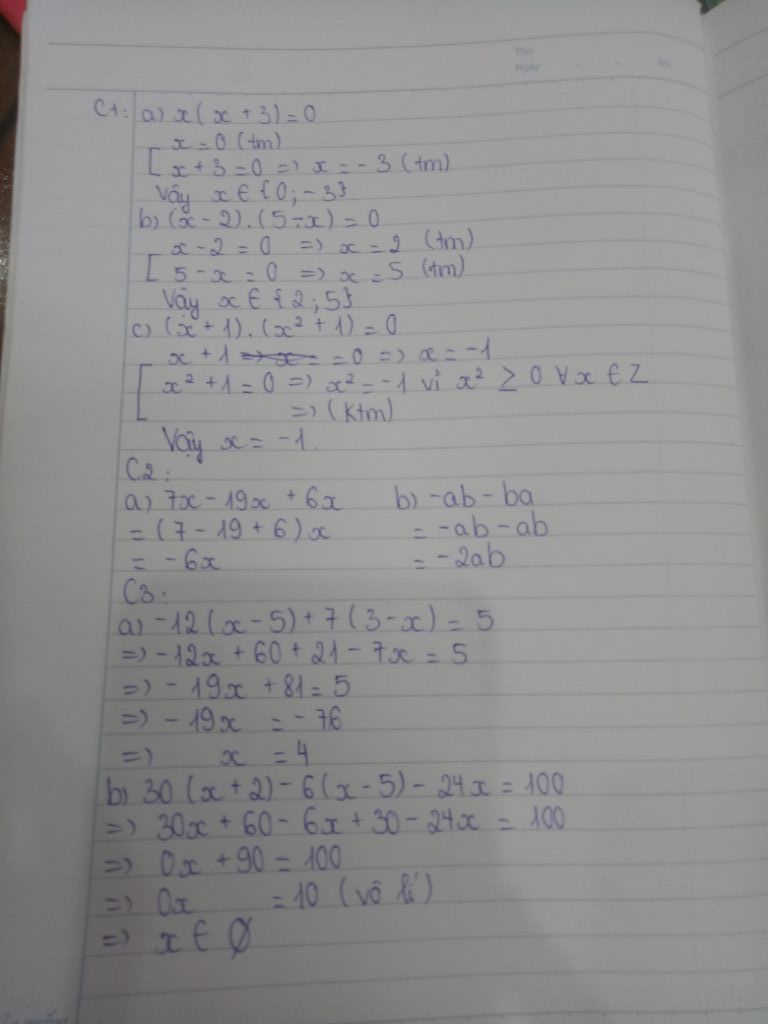 Thứ
Ngày . . No.
C1: a) x(x + 3) = 0
x = 0 (tm)
[ x + 3 = 0 => x = - 3 (tm)
Vậy x ∈ {0; -3}
b) (x - 2).(5 - x) = 0
x - 2 = 0 => x = 2 (tm)
[ 5 - x = 0 => x = 5 (tm)
Vậy x ∈ {2; 5}
c) (x + 1).(x² + 1) = 0
x + 1 = 0 => x = -1
[ x² + 1 = 0 => x² = -1 vì x² ≥ 0 ∀x ∈ Z
=> (Ktm)
Vậy x = -1.
C2:
a) 7x - 19x + 6x b) -ab - ba
= (7 - 19 + 6)x = -ab - ab
= -6x = -2ab
C3:
a) -12(x - 5) + 7(3 - x) = 5
=> -12x + 60 + 21 - 7x = 5
=> - 19x + 81 = 5
=> - 19x = - 76
=> x = 4
b) 30(x + 2) - 6(x - 5) - 24x = 100
=> 30x + 60 - 6x + 30 - 24x = 100
=> 0x + 90 = 100
=> 0x = 10 (vô lí)
=> x ∈ ∅